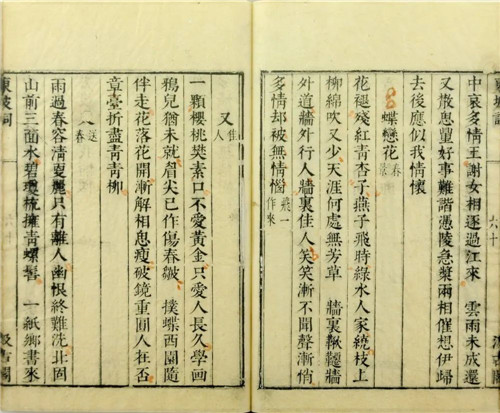 東坡詞
六十
汲古閣
中哀多情王謝女相逐過江來　雲雨未成還
又散思量好事難諧憑陵急槳兩相催想伊歸
去後應似我情懷
蝶戀花 春景
花褪殘紅青杏子燕子飛時綠水人家繞枝上
柳綿吹又少天涯何處無芳草　牆裏鞦韆牆
外道牆外行人牆裏佳人笑笑漸不聞聲漸俏
多情却被無情惱 飛一作來
又 佳人
一顆櫻桃樊素口不愛黃金只愛人長久學畫
鴉兒猶未就眉尖已作傷春皺　撲蝶西園隨
伴走花落花開漸解相思瘦破鏡重圓人在否
章臺折盡青青柳
又 送春
雨過春容清更麗只有離人幽恨終難洗北固
山前三面水碧瓊梳擁青螺髻　一紙鄉書來
東坡詞
六十
汲古閣